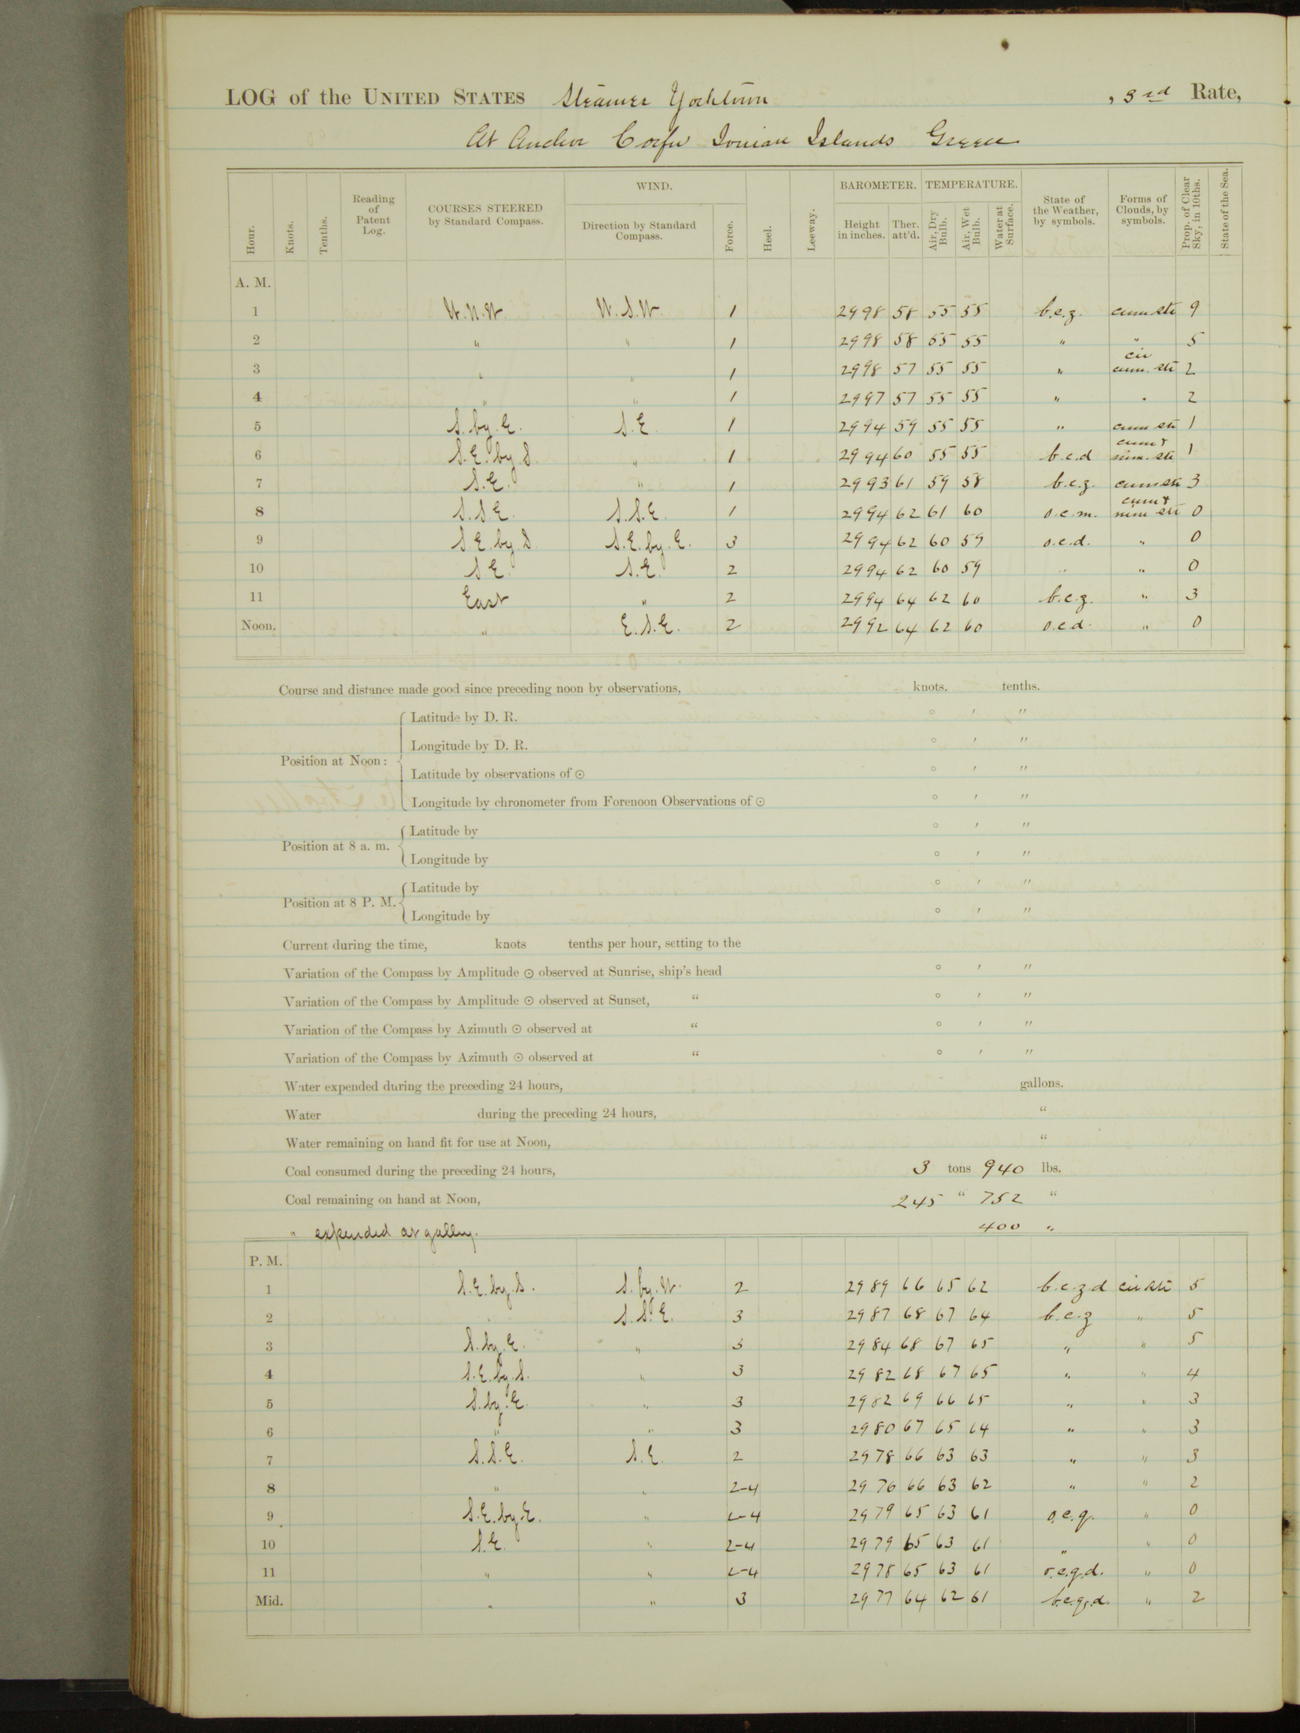 LOG of the UNITED STATES Steamer Yorktown , 3rd Rate,
At Anchor Corfu Ionian Islands Greece
Hour. Knots. Tenths. Reading of Patent Log. COURSES STEERED by Standard Compass. WIND. Direction by Standard Compass. Force. Heel. Leeway. BAROMETER. Height in inches. Ther. att'd. TEMPERATURE. Air, Dry Bulb. Air, Wet Bulb. Water at Surface. State of the Weather, by symbols. Forms of Clouds, by symbols. Prop. of Clear Sky, in 10ths. State of the Sea.
A. M.
1 W.N.W. W.S.W. 1 29 98 58 55 55 b.c.z. cum str 9
2 " " 1 29 98 58 55 55 " " 5
3 " " 1 29 98 57 55 55 " cir cum. str 2
4 " " 1 29 97 57 55 55 " " 2
5 S. by E. S.E 1 29 94 59 55 55 " cum str 1
6 S.E. by S. " 1 29 94 60 55 55 b.c.d cum & nim. str 1
7 S.E. " 1 29 93 61 59 58 b.c.z. cum str 3
8 S.S.E. S.S.E. 1 29 94 62 61 60 o.c.m. cum & nim str 0
9 S.E. by S. S.E. by E. 3 29 94 62 60 59 o.c.d. " 0
10 S.E. S.E. 2 29 94 62 60 59 " " 0
11 East " 2 29 94 64 62 60 b.c.z. " 3
Noon. " E.S.E. 2 29 92 64 62 60 o.c.d. " 0
Course and distance made good since preceding noon by observations, knots. tenths.
Position at Noon: Latitude by D. R. ° ′ ″
Longitude by D. R. ° ′ ″
Latitude by observations of ⊙ ° ′ ″
Longitude by chronometer from Forenoon Observations of ⊙ ° ′ ″
Position at 8 a. m. Latitude by ° ′ ″
Longitude by ° ′ ″
Position at 8 P. M. Latitude by ° ′ ″
Longitude by ° ′ ″
Current during the time, knots tenths per hour, setting to the
Variation of the Compass by Amplitude ⊙ observed at Sunrise, ship's head ° ′ ″
Variation of the Compass by Amplitude ⊙ observed at Sunset, " ° ′ ″
Variation of the Compass by Azimuth ⊙ observed at " ° ′ ″
Variation of the Compass by Azimuth ⊙ observed at " ° ′ ″
Water expended during the preceding 24 hours, gallons.
Water during the preceding 24 hours, "
Water remaining on hand fit for use at Noon, "
Coal consumed during the preceding 24 hours, 3 tons 940 lbs.
Coal remaining on hand at Noon, 245 " 752 "
" expended at galley. 400 "
P. M.
1 S.E. by S. S. by W. 2 29 89 66 65 62 b.c.z.d cir str 5
2 S.S.E. 3 29 87 68 67 64 b.c.z " 5
3 S. by E. " 3 29 84 68 67 65 " " 5
4 S.E. by S. " 3 29 82 68 67 65 " " 4
5 S. by E. " 3 29 82 69 66 65 " " 3
6 " " 3 29 80 67 65 64 " " 3
7 S.S.E. S.E. 2 29 78 66 63 63 " " 3
8 " " 2-4 29 76 66 63 62 " " 2
9 S.E. by E. " 2-4 29 79 65 63 61 o.c.q. " 0
10 S.E. " 2-4 29 79 65 63 61 " " 0
11 " " 2-4 29 78 65 63 61 o.c.q.d. " 0
Mid. " " 3 29 77 64 62 61 b.c.q.d. " 2